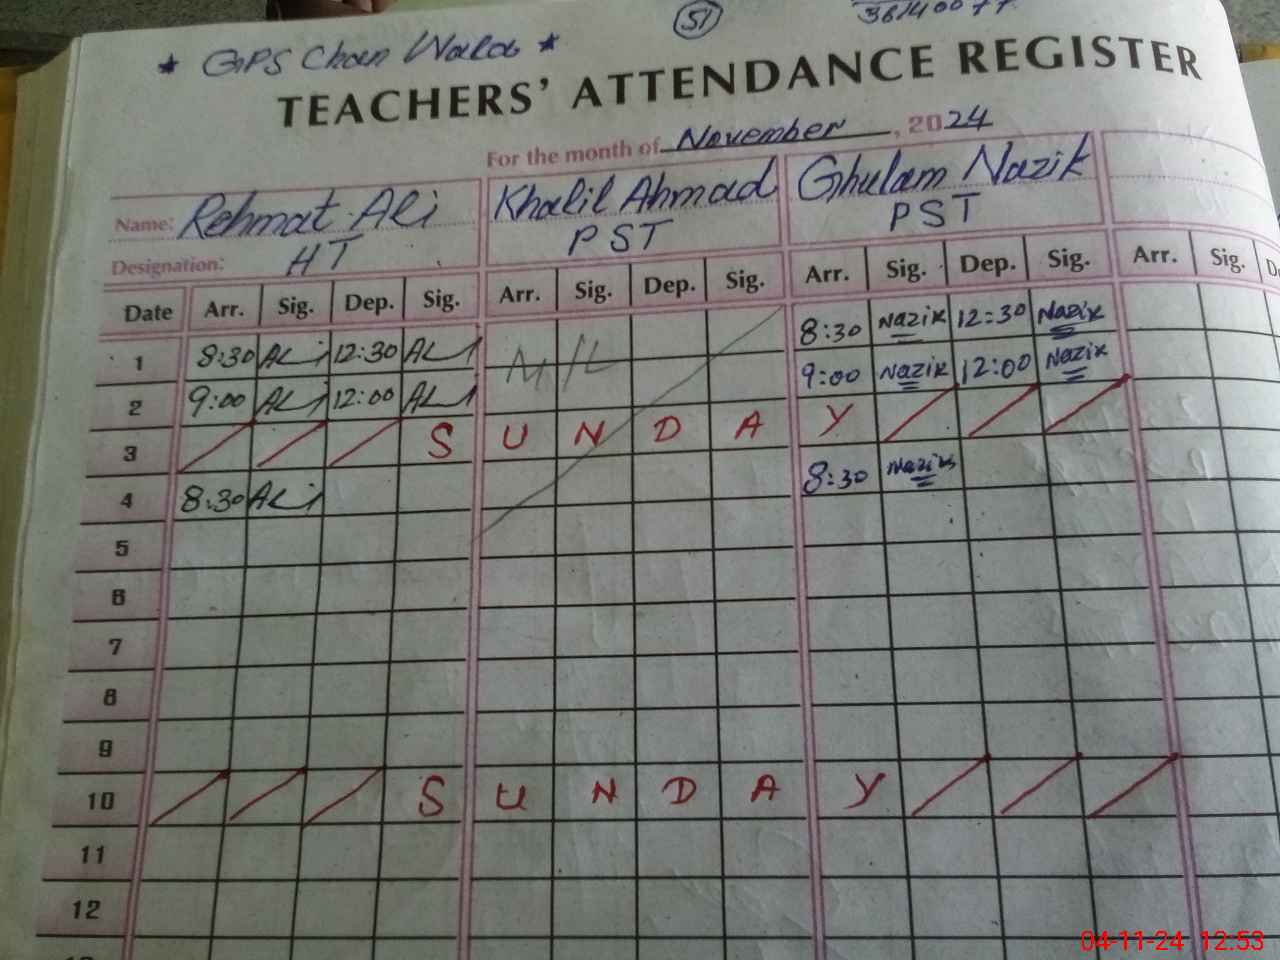 51
36140077
★ GPS Chan Wala ★
TEACHERS' ATTENDANCE REGISTER
For the month of November, 2024
Name: Rehmat Ali Khalil Ahmad Ghulam Nazik
Designation: HT PST PST
Date Arr. Sig. Dep. Sig. Arr. Sig. Dep. Sig. Arr. Sig. Dep. Sig. Arr. Sig.
1 8:30 ALi 12:30 ALi M/L 8:30 Nazik 12:30 Nazik
2 9:00 ALi 12:00 ALi 9:00 Nazik 12:00 Nazik
3 S U N D A Y
4 8:30 ALi 8:30 Nazik
5
6
7
8
9
10 S U N D A Y
11
12
04-11-24 12:53